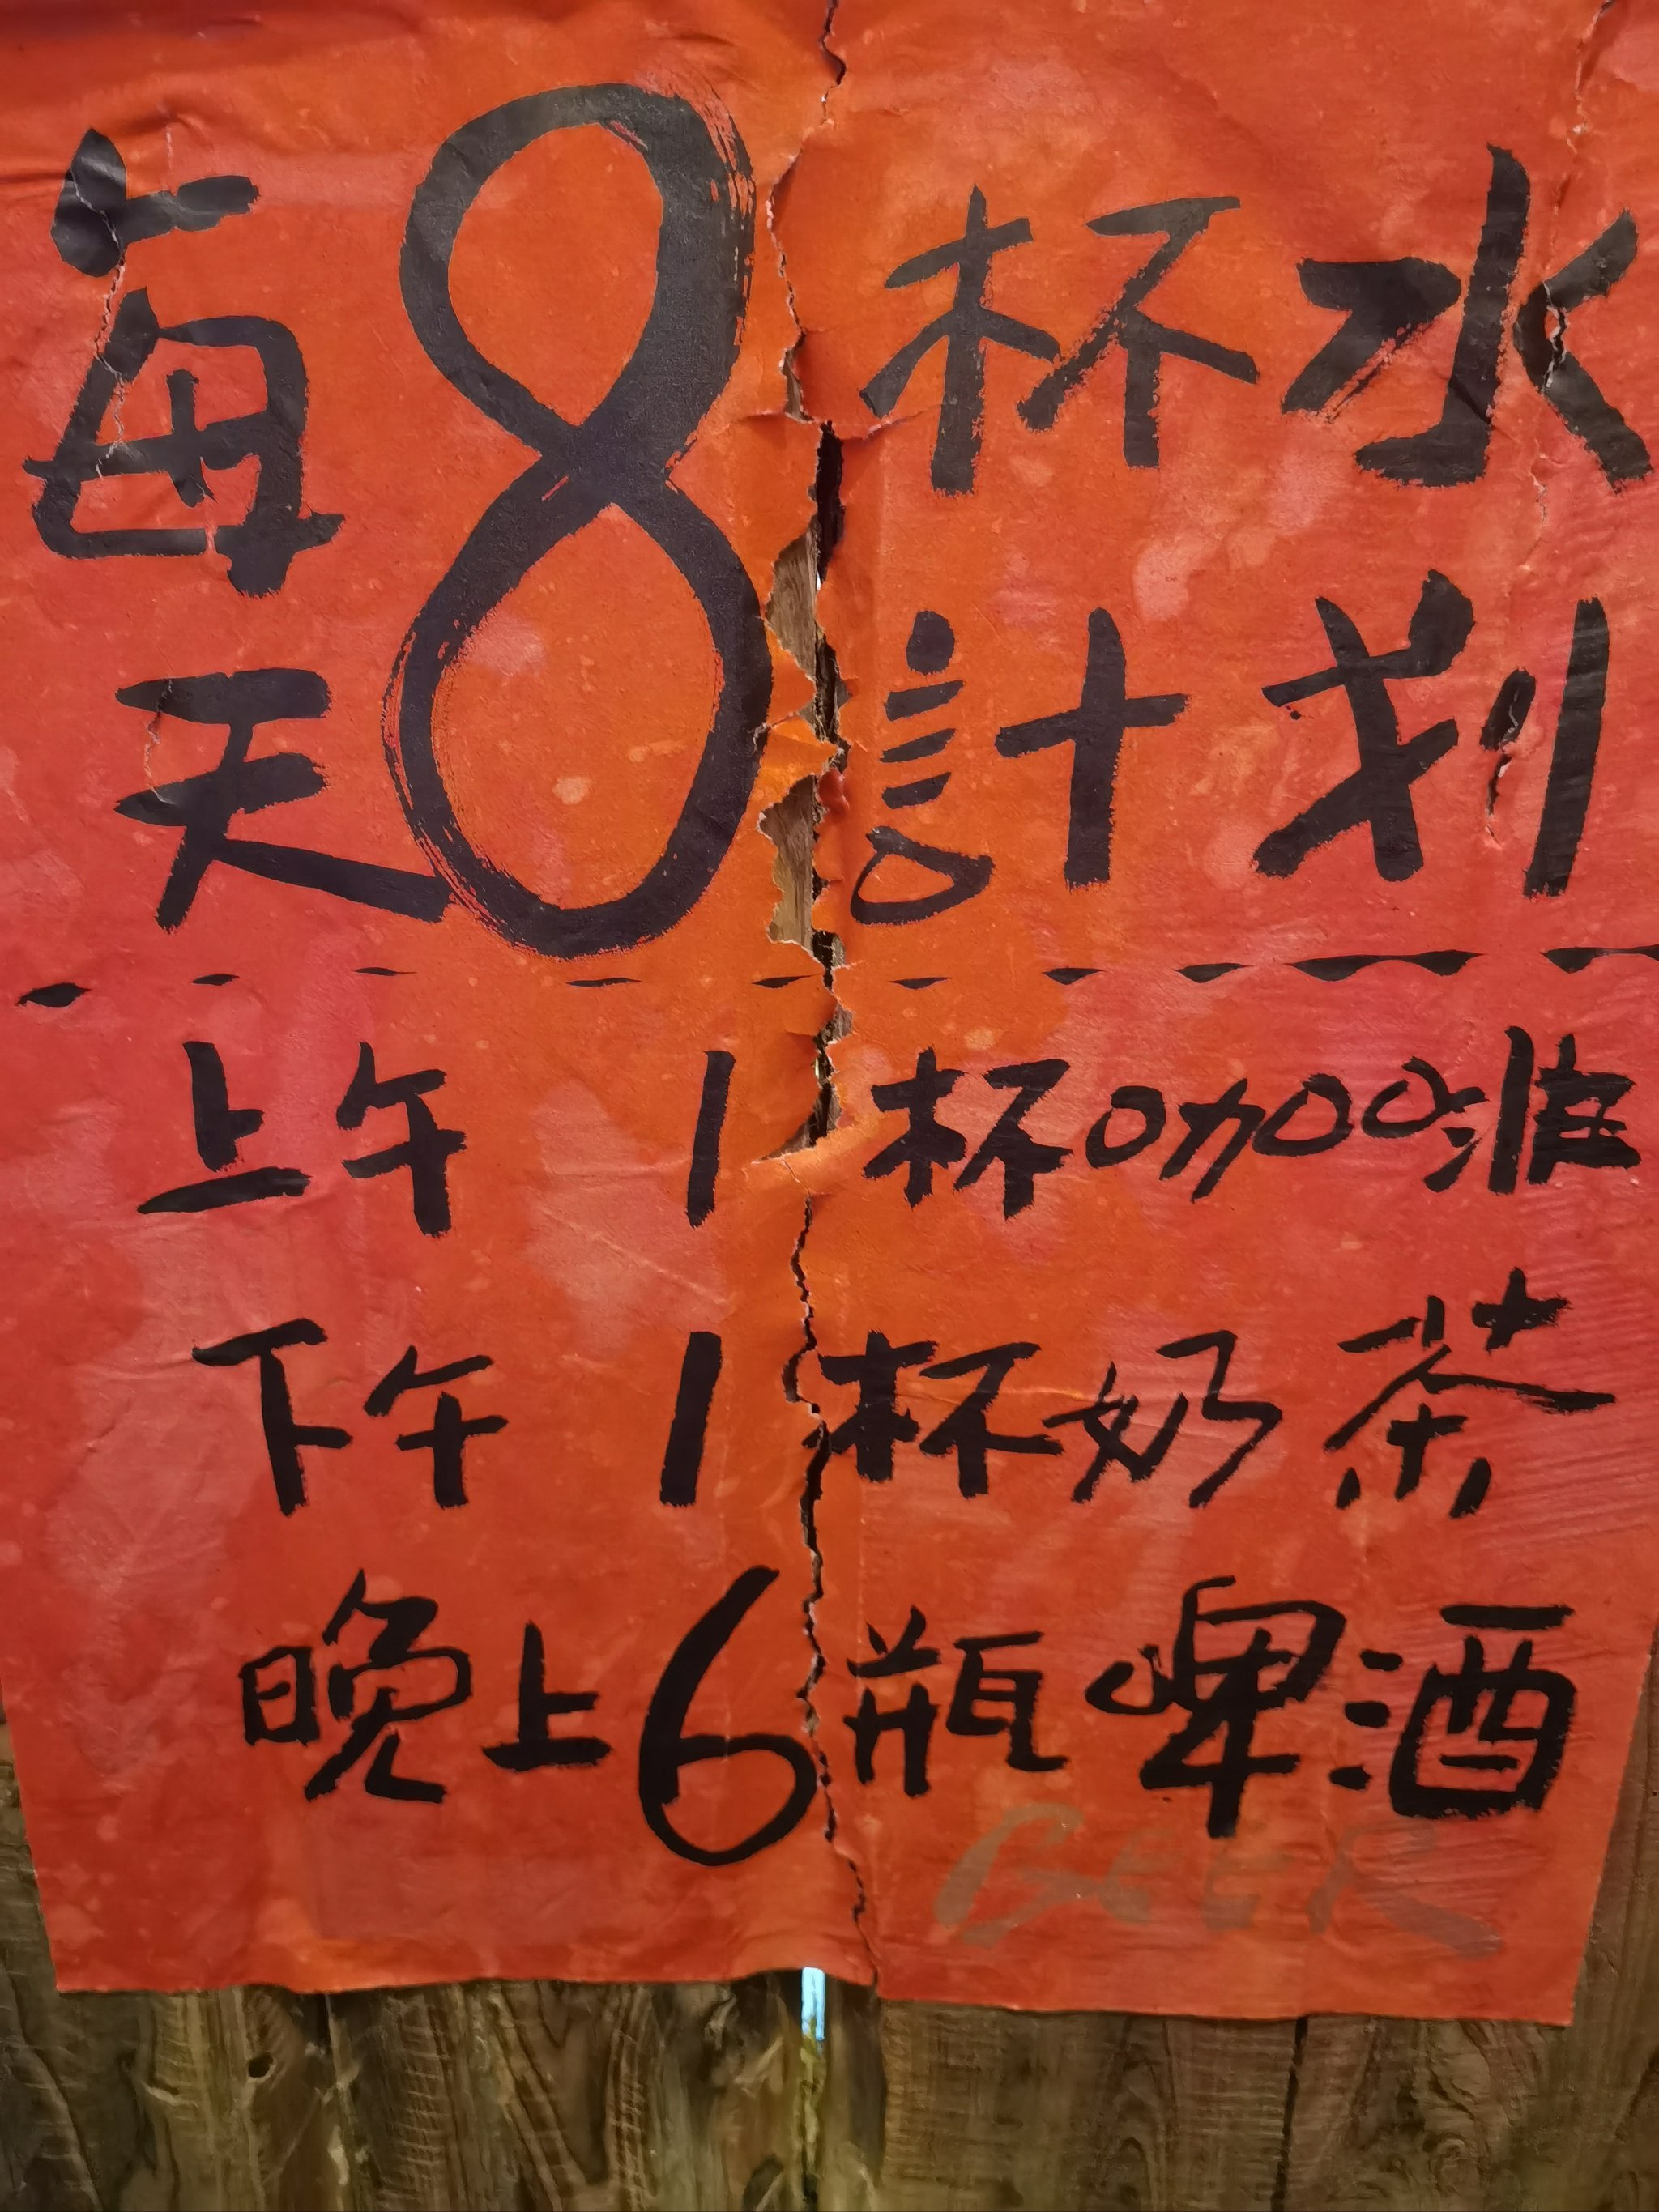 每天8杯水
計划
上午1杯咖啡
下午1杯奶茶
晚上6瓶啤酒
BEER